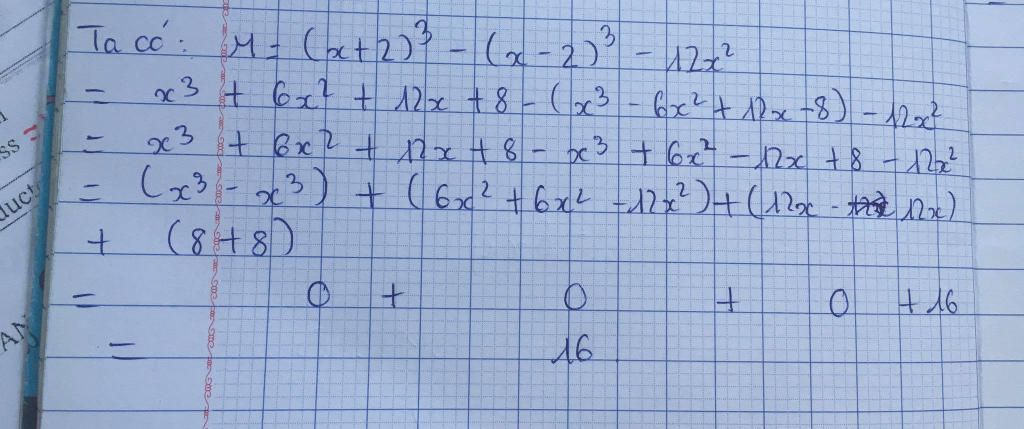 Ta có: M = (x+2)³ - (x-2)³ - 12x²
= x³ + 6x² + 12x + 8 - (x³ - 6x² + 12x - 8) - 12x²
= x³ + 6x² + 12x + 8 - x³ + 6x² - 12x + 8 - 12x²
= (x³ - x³) + (6x² + 6x² - 12x²) + (12x - 12x)
+ (8 + 8)
= 0 + 0 + 0 + 16
= 16
ss
duct
AN